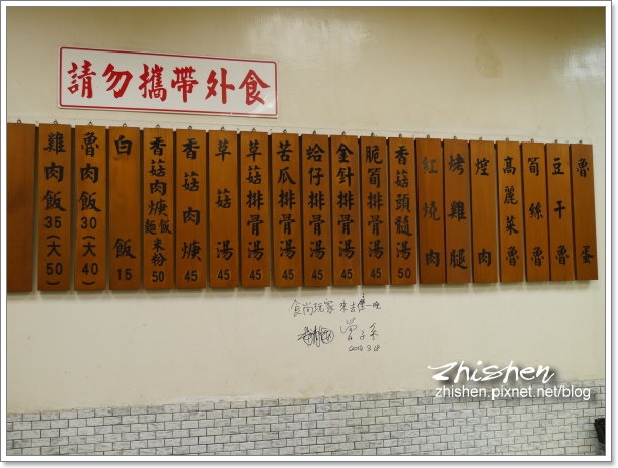 請勿攜帶外食
雞肉飯35(大50)
魯肉飯30(大40)
白飯15
香菇肉焿飯麵米粉50
香菇肉焿45
草菇湯45
草菇排骨湯45
苦瓜排骨湯45
蛤仔排骨湯45
金針排骨湯45
脆筍排骨湯45
香菇頭髓湯50
紅燒肉
烤雞腿
焢肉
高麗菜魯
筍絲魯
豆干魯
魯蛋
食尚玩家 來去住一晚
Zhishen
zhishen.pixnet.net/blog